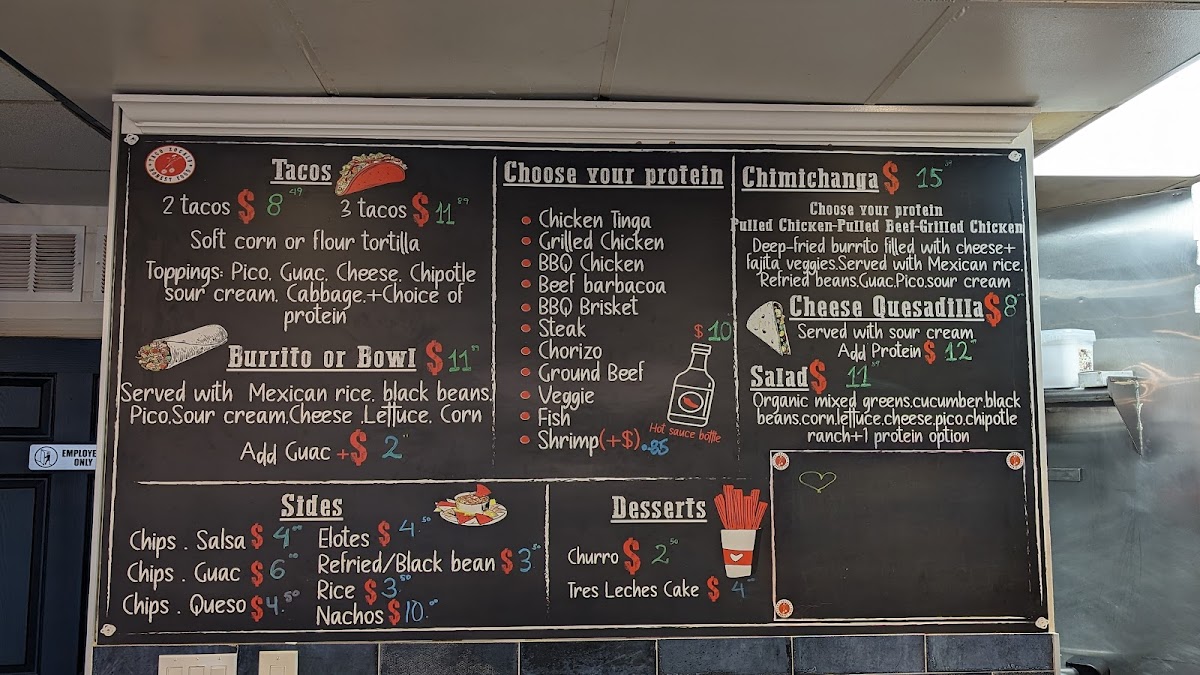 Tacos
2 tacos $ 8 49
3 tacos $ 11 89
Soft corn or flour tortilla
Toppings: Pico, Guac, Cheese, Chipotle
sour cream, Cabbage,+Choice of
protein
Burrito or Bowl $ 11
Served with Mexican rice, black beans,
Pico,Sour cream,Cheese ,Lettuce, Corn
Add Guac +$ 2
Choose your protein
Chicken Tinga
Grilled Chicken
BBQ Chicken
Beef barbacoa
BBQ Brisket
Steak
Chorizo
Ground Beef
Veggie
Fish
Shrimp(+$).85
$ 10
Hot sauce bottle
Chimichanga $ 15
Choose your protein
Pulled Chicken-Pulled Beef-Grilled Chicken
Deep-fried burrito filled with cheese+
fajita veggies.Served with Mexican rice,
Refried beans,Guac,Pico,sour cream
Cheese Quesadilla $ 8
Served with sour cream
Add Protein $ 12
Salad $ 11
Organic mixed greens,cucumber,black
beans,corn,lettuce,cheese,pico,chipotle
ranch+1 protein option
EMPLOYE
ONLY
Sides
Chips . Salsa $ 4
Chips . Guac $ 6
Chips . Queso $ 4.50
Elotes $ 4.50
Refried/Black bean $ 3.50
Rice $ 3.50
Nachos $ 10.00
Desserts
Churro $ 2 50
Tres Leches Cake $ 4